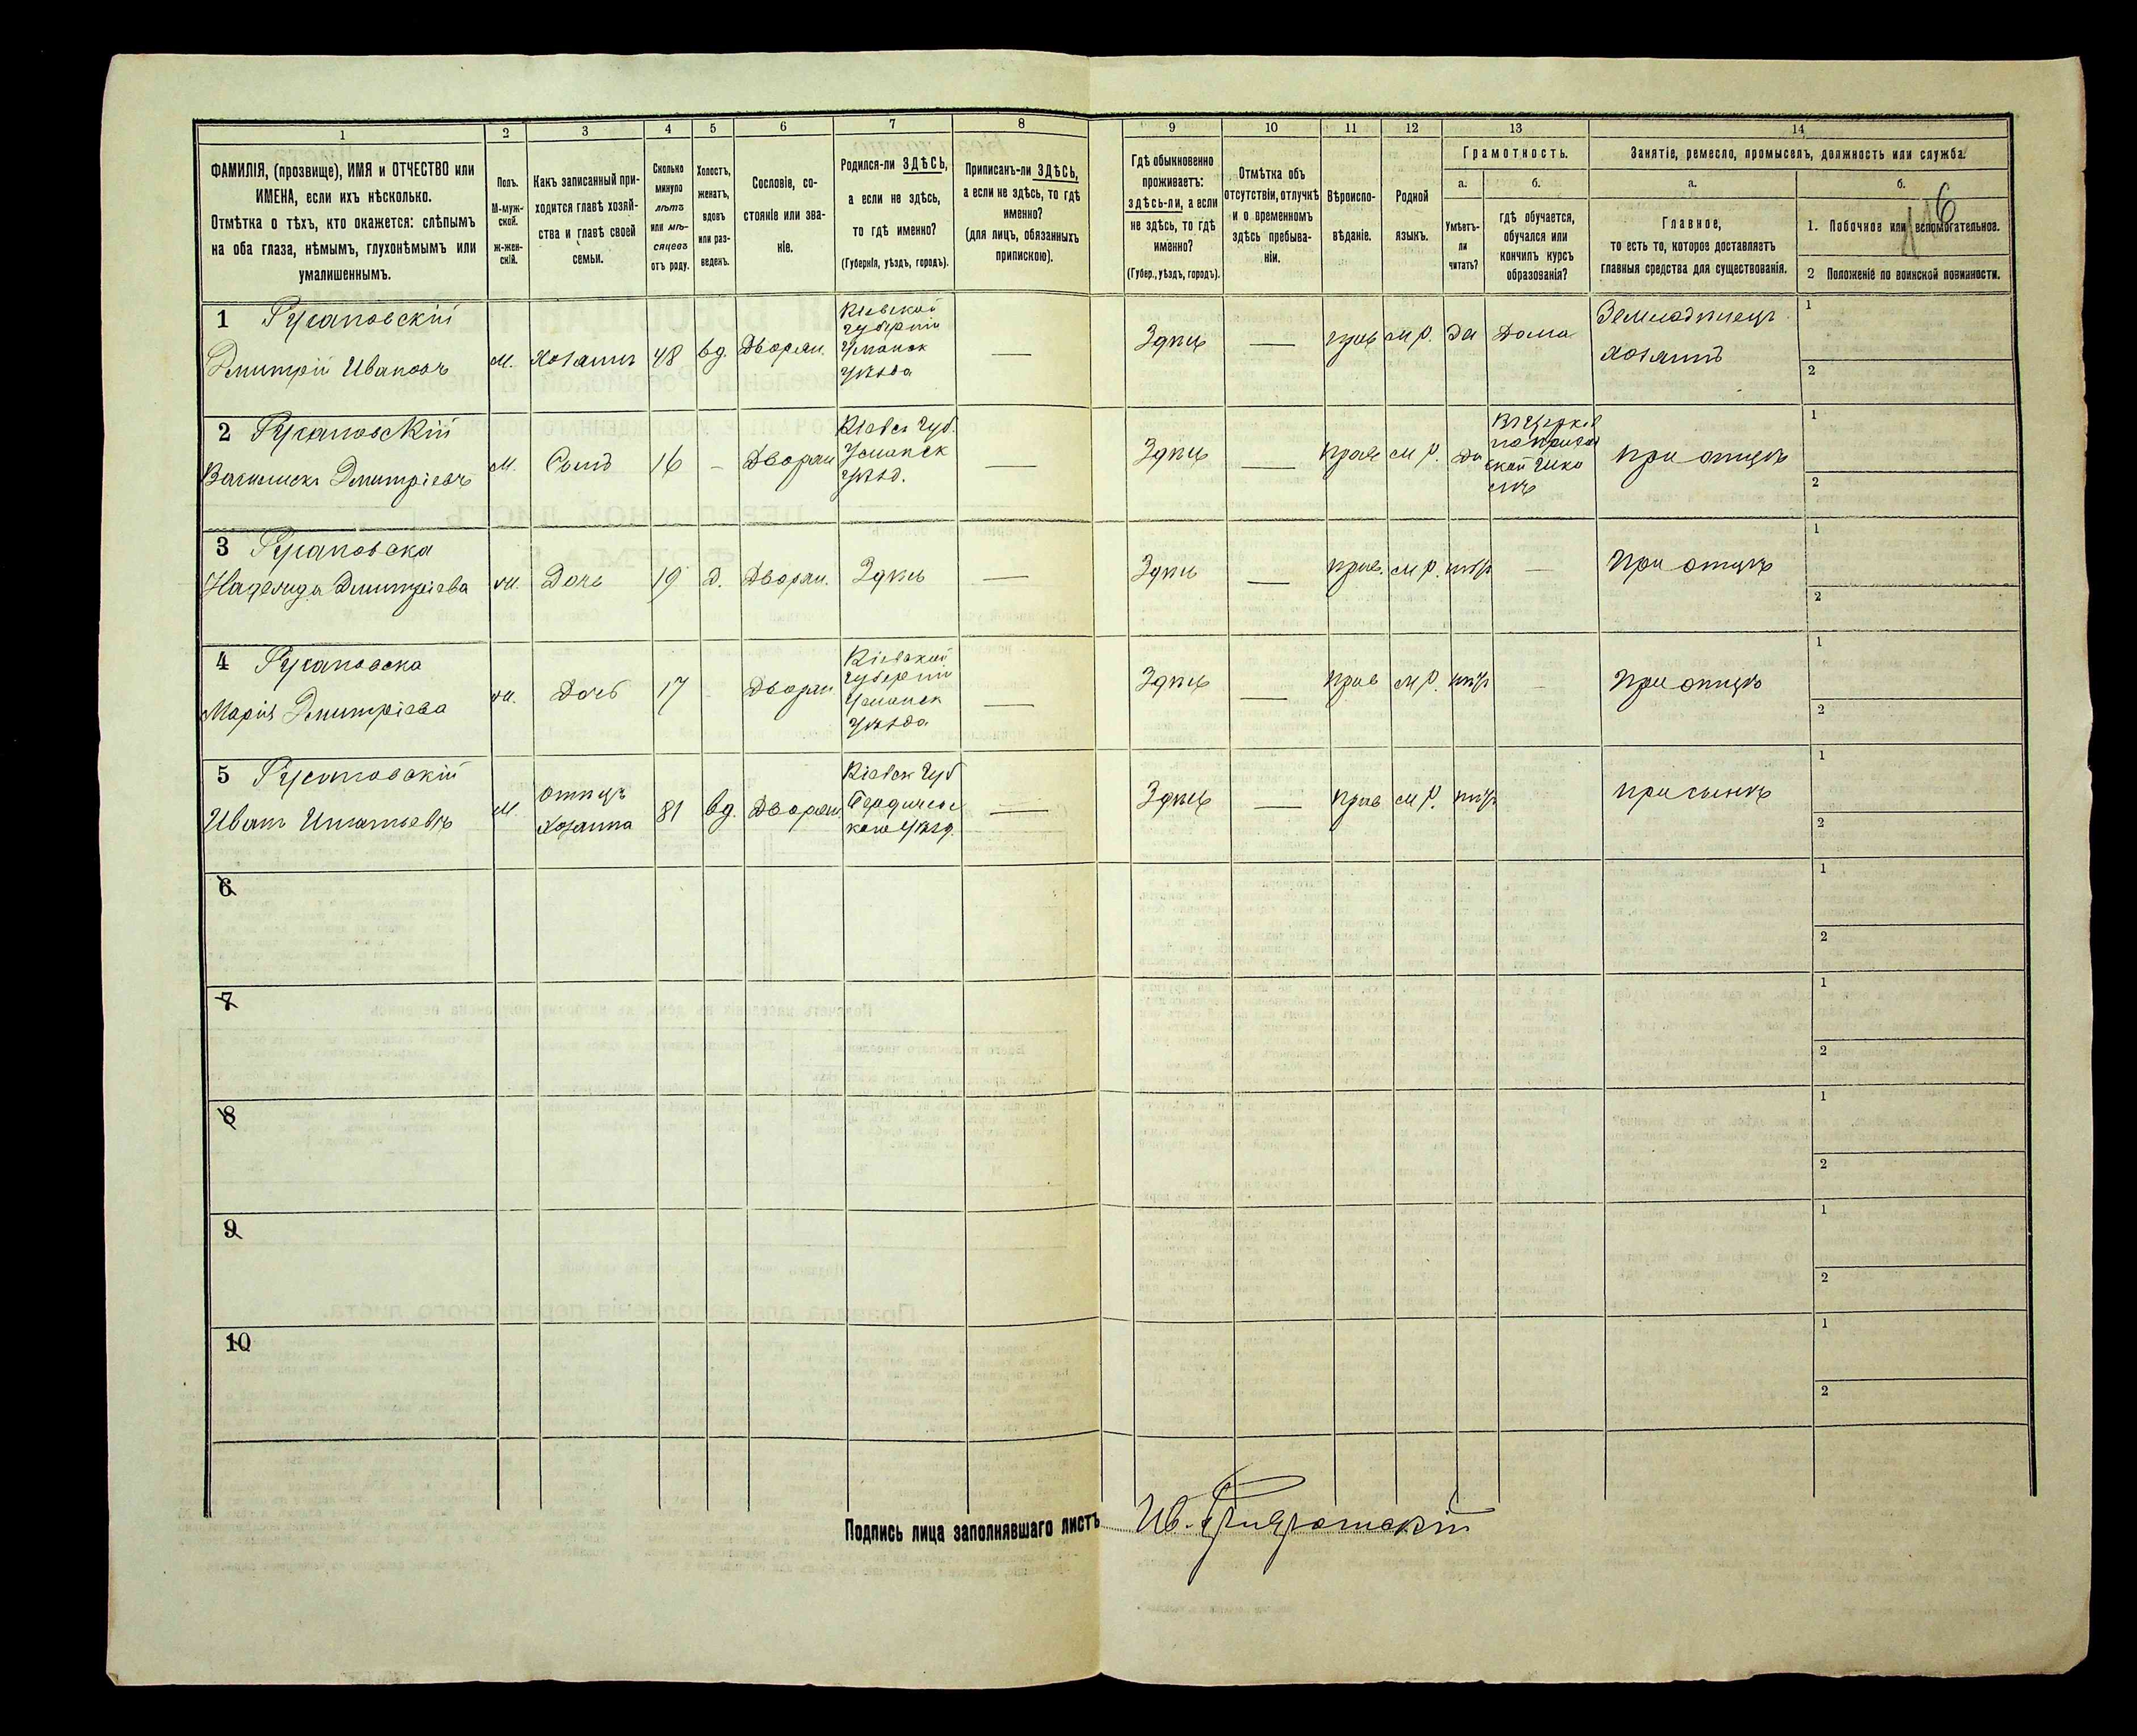 1
2
3
4
5
6
7
8
9
10
11
12
13
14
ФАМИЛІЯ, (прозвище), ИМЯ и ОТЧЕСТВО или
ИМЕНА, если ихъ нѣсколько.
Отмѣтка о тѣхъ, кто окажется: слѣпымъ
на оба глаза, нѣмымъ, глухонѣмымъ или
умалишеннымъ.
Полъ.
М-муж-
ской.
Ж-жен-
скій.
Какъ записанный при-
ходится главѣ хозяй-
ства и главѣ своей
семьи.
Сколько
минуло
лѣтъ
или мѣ-
сяцевъ
отъ роду.
Холостъ,
женатъ,
вдовъ
или раз-
веденъ.
Сословіе, со-
стояніе или зва-
ніе.
Родился-ли ЗДѢСЬ,
а если не здѣсь,
то гдѣ именно?
(Губернія, уѣздъ, городъ).
Приписанъ-ли ЗДѢСЬ,
а если не здѣсь, то гдѣ
именно?
(для лицъ, обязанныхъ
припискою).
Гдѣ обыкновенно
проживаетъ:
здѣсь-ли, а если
не здѣсь, то гдѣ
именно?
(Губер., уѣздъ, городъ).
Отмѣтка объ
отсутствіи, отлучкѣ
и о временномъ
здѣсь пребыва-
ніи.
Вѣроиспо-
вѣданіе.
Родной
языкъ.
Грамотность.
а.
Умѣетъ-
ли
читать?
б.
гдѣ обучается,
обучался или
кончилъ курсъ
образованія?
Занятіе, ремесло, промыселъ, должность или служба.
а.
Главное,
то есть то, которое доставляетъ
главныя средства для существованія.
б.
1. Побочное или вспомогательное.
2 Положеніе по воинской повинности.
1 Русановскій
Дмитрій Ивановъ
м.
Хозяинъ
48
вд.
Дворян.
Кіевской
губерніи
Уманск
уѣзда
—
Здѣсь
—
прав
м р.
да
Дома
Земледѣлецъ
хозяинъ
1
2
2 Русановскій
Дмитріевъ
м.
Сынъ
16
–
Дворян
Кіевск губ.
Уманск
уѣзд.
—
Здѣсь
—
прав
м р.
да
школ
при отцѣ
1
2
3 Русановска
Надежда Дмитріева
ж.
Дочь
19
д.
Дворян.
Здѣсь
—
Здѣсь
—
прав.
м р.
нѣт
—
При отцѣ
1
2
4 Русановска
Марія Дмитріева
ж.
Дочь
17
Дворян
Кіевской
губерніи
Уманск
уѣзда
—
Здѣсь
—
прав
м р.
нѣт
—
При отцѣ
1
2
5 Русановскій
Иванъ Игнатьевъ
м
отецъ
хозяина
81
вд.
Дворян.
Кіевск губ
Бердичевс
каго уѣзд.
—
Здѣсь
—
прав
м р.
нѣт
при сынѣ
1
2
6
1
2
7
1
2
8
1
2
9
1
2
10
1
2
Подпись лица заполнявшаго листъ
Ив.